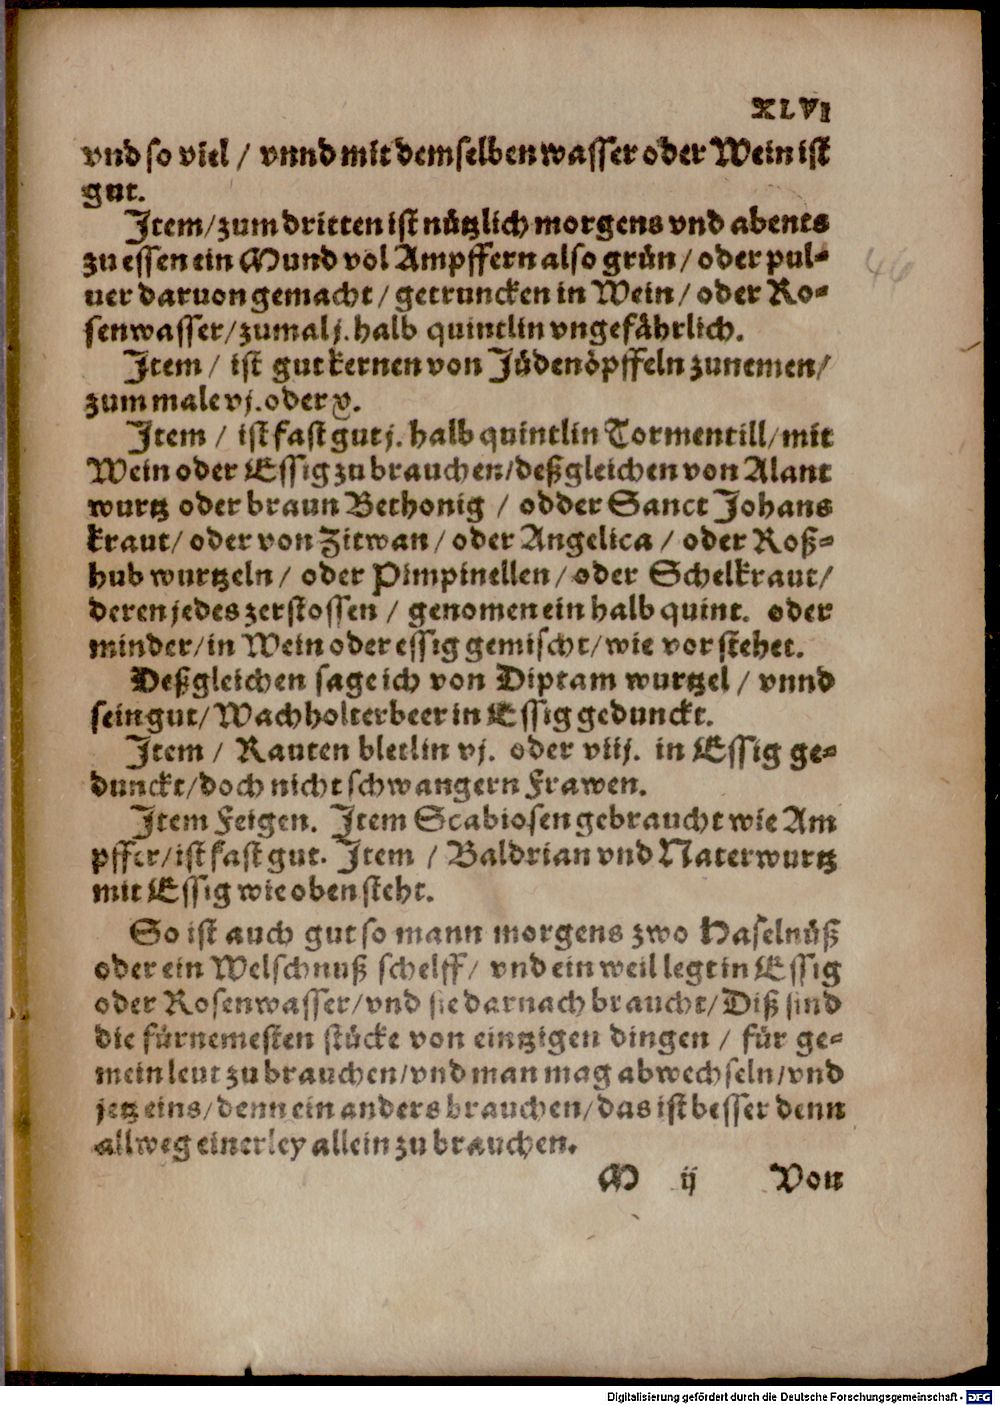 XLVI
vnd so viel / vnnd mit demselben wasser oder Wein ist
gut.
Item/zum dritten ist nützlich morgens vnd abents
zu essen ein Mund vol Ampffern also grün/ oder pul-
uer daruon gemacht/ getruncken in Wein/ oder Ro-
senwasser/zumal j. halb quintlin vngefährlich.
Item/ ist gut kernen von Jüdenöpffeln zunemen/
zum male vj. oder x.
Item / ist fast gut j. halb quintlin Tormentill/mit
Wein oder Essig zu brauchen/deßgleichen von Alant
wurtz oder braun Bethonig / odder Sanct Johans
kraut/ oder von Zitwan/ oder Angelica / oder Roß-
hub wurtzeln/ oder Pimpinellen/ oder Schelkraut/
deren jedes zerstossen / genomen ein halb quint. oder
minder/in Wein oder essig gemischt/wie vor stehet.
Deßgleichen sage ich von Diptam wurtzel/ vnnd
sein gut/ Wachholterbeer in Essig geduncket.
Item / Rauten bletlin vj. oder viij. in Essig ge-
dunckt/doch nicht schwangern Frawen.
Item Feigen. Item Scabiosen gebraucht wie Am
pffer/ist fast gut. Item / Baldrian vnd Naterwurtz
mit Essig wie oben steht.
So ist auch gut so mann morgens zwo Haselnüß
oder ein Welschnuß schelff/ vnd ein weil legt in Essig
oder Rosenwasser/vnd sie darnach braucht/Diß sind
die fürnemesten stücke von eintzigen dingen / für ge-
mein leut zu brauchen/vnd man mag abwechseln/vnd
jetz eins/denn ein anders brauchen/das ist besser denn
allweg einerley allein zu brauchen.
M ij Von
46
Digitalisierung gefördert durch die Deutsche Forschungsgemeinschaft - DFG